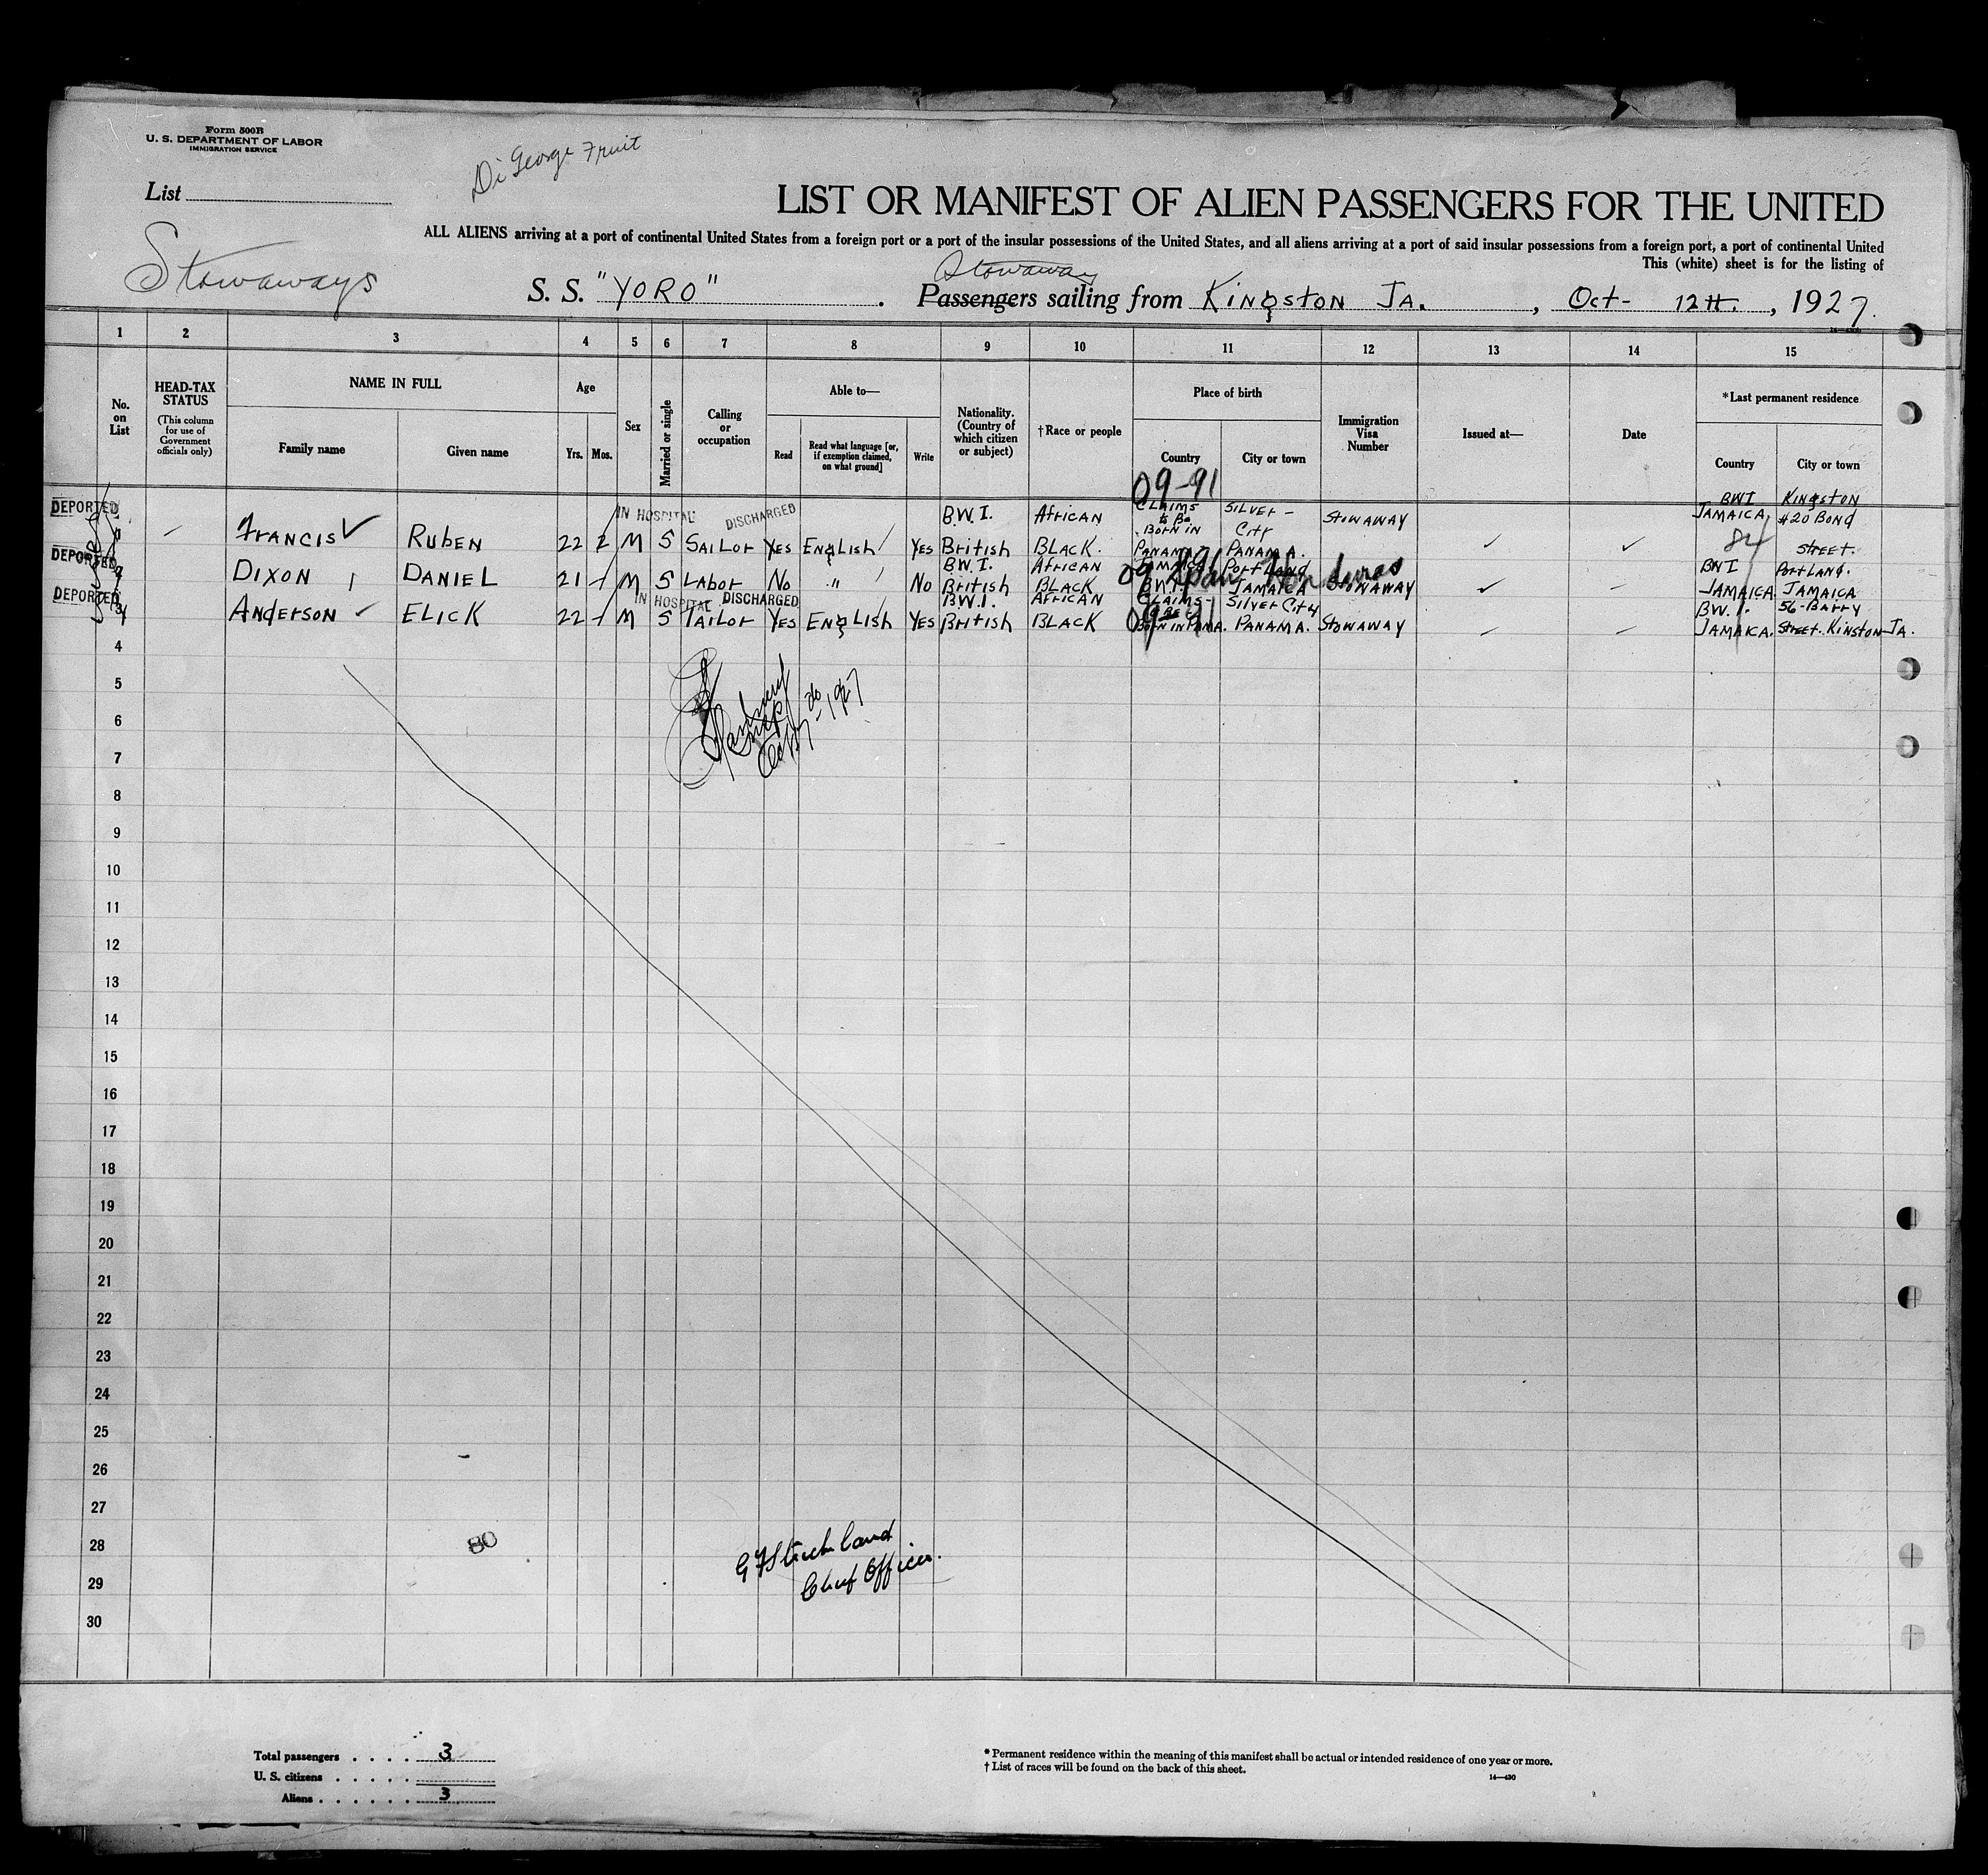 Form 500B
U. S. DEPARTMENT OF LABOR
IMMIGRATION SERVICE
Di George Fruit
List
LIST OR MANIFEST OF ALIEN PASSENGERS FOR THE UNITED
ALL ALIENS arriving at a port of continental United States from a foreign port or a port of the insular possessions of the United States, and all aliens arriving at a port of said insular possessions from a foreign port, a port of continental United
This (white) sheet is for the listing of
Stowaways
Stowaway
S. S. "YORO". Passengers sailing from KINGSTON JA., Oct- 12th., 1927.
1 2 3 4 5 6 7 8 9 10 11 12 13 14 15
No. on List
HEAD-TAX STATUS
(This column for use of Government officials only)
NAME IN FULL
Family name
Given name
Age
Yrs.
Mos.
Sex
Married or single
Calling or occupation
Able to—
Read
Read what language [or, if exemption claimed, on what ground]
Write
Nationality. (Country of which citizen or subject)
†Race or people
Place of birth
Country
City or town
Immigration Visa Number
Issued at—
Date
*Last permanent residence
Country
City or town
09-91
DEPORTED
IN HOSPITAL DISCHARGED
FRANCIS RUBEN 22 2 M S SAILOR YES ENGLISH YES B.W.I. British AFRICAN BLACK. CLAIMS to Be BORN IN PANAMA SILVER - CITY PANAMA. STOWAWAY BWI JAMAICA, KINGSTON #20 BOND STREET.
84
DEPORTED
DIXON DANIEL 21 M S LABOR No " No B.W.I. British AFRICAN BLACK JAMAICA B.W.I. PORTLAND JAMAICA STOWAWAY BWI JAMAICA PORTLAND. JAMAICA
Honduras
DEPORTED
IN HOSPITAL DISCHARGED
ANDERSON ELICK 22 M S TAILOR YES ENGLISH YES B.W.I. British AFRICAN BLACK CLAIMS- BORN IN PANA. SILVER CITY PANAMA. STOWAWAY B.W.I. JAMAICA. 56-BARRY STREET. KINSTON JA.
09-91
4
5
6
7
8
9
10
11
12
13
14
15
16
17
18
19
20
21
22
23
24
25
26
27
28
29
30
80
Chief Officer.
Total passengers . . . . 3
U. S. citizens . . . . .
Aliens . . . . . . 3
* Permanent residence within the meaning of this manifest shall be actual or intended residence of one year or more.
† List of races will be found on the back of this sheet.
14—430